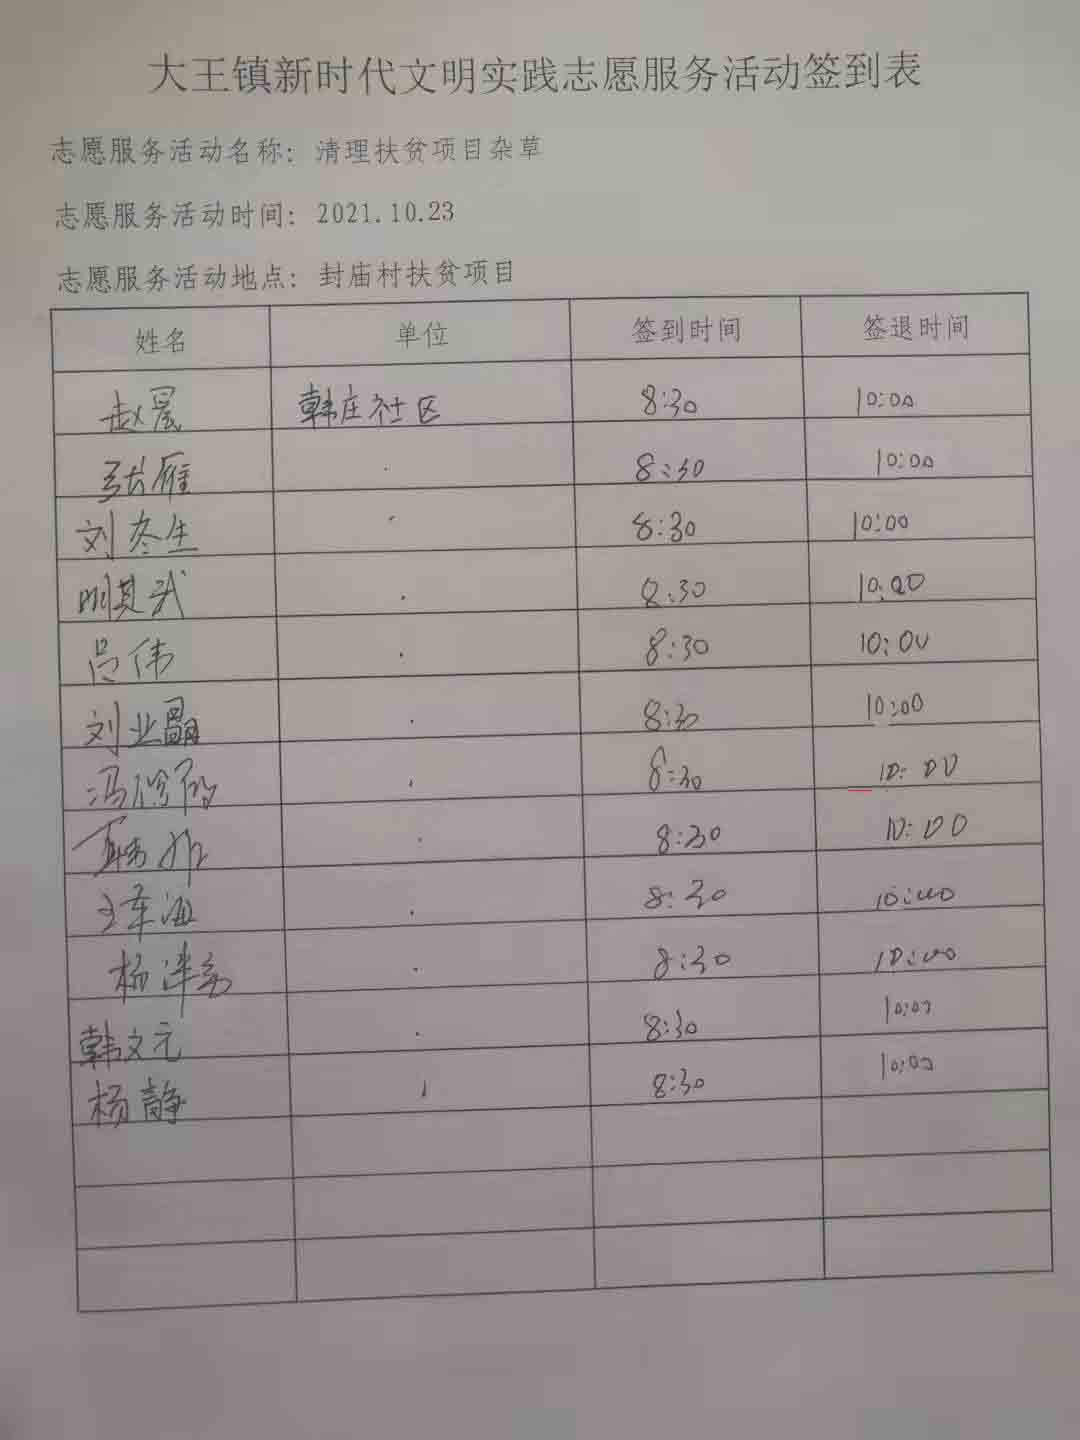 大王镇新时代文明实践志愿服务活动签到表
志愿服务活动名称：清理扶贫项目杂草
志愿服务活动时间：2021.10.23
志愿服务活动地点：封庙村扶贫项目
姓名 单位 签到时间 签退时间
赵晨 韩庄社区 8:30 10:00
张雁 8:30 10:00
刘冬生 8:30 10:00
明其武 8:30 10:00
吕伟 8:30 10:00
刘业嗣 8:30 10:00
冯 8:30 10:00
8:30 10:00
王海 8:30 10:00
杨 8:30 10:00
韩文元 8:30 10:00
杨静 8:30 10:00